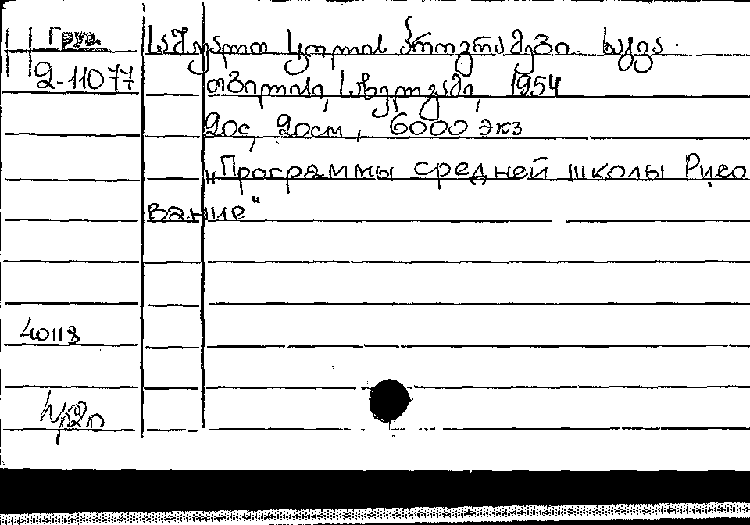 Груз.
2-11077
საშუალო სკოლის პროგრამები. ხატვა.
თბილისი, სახელგამი, 1954
20с, 20см, 6000 экз
„Программы средней школы Рисо
вание"
40118